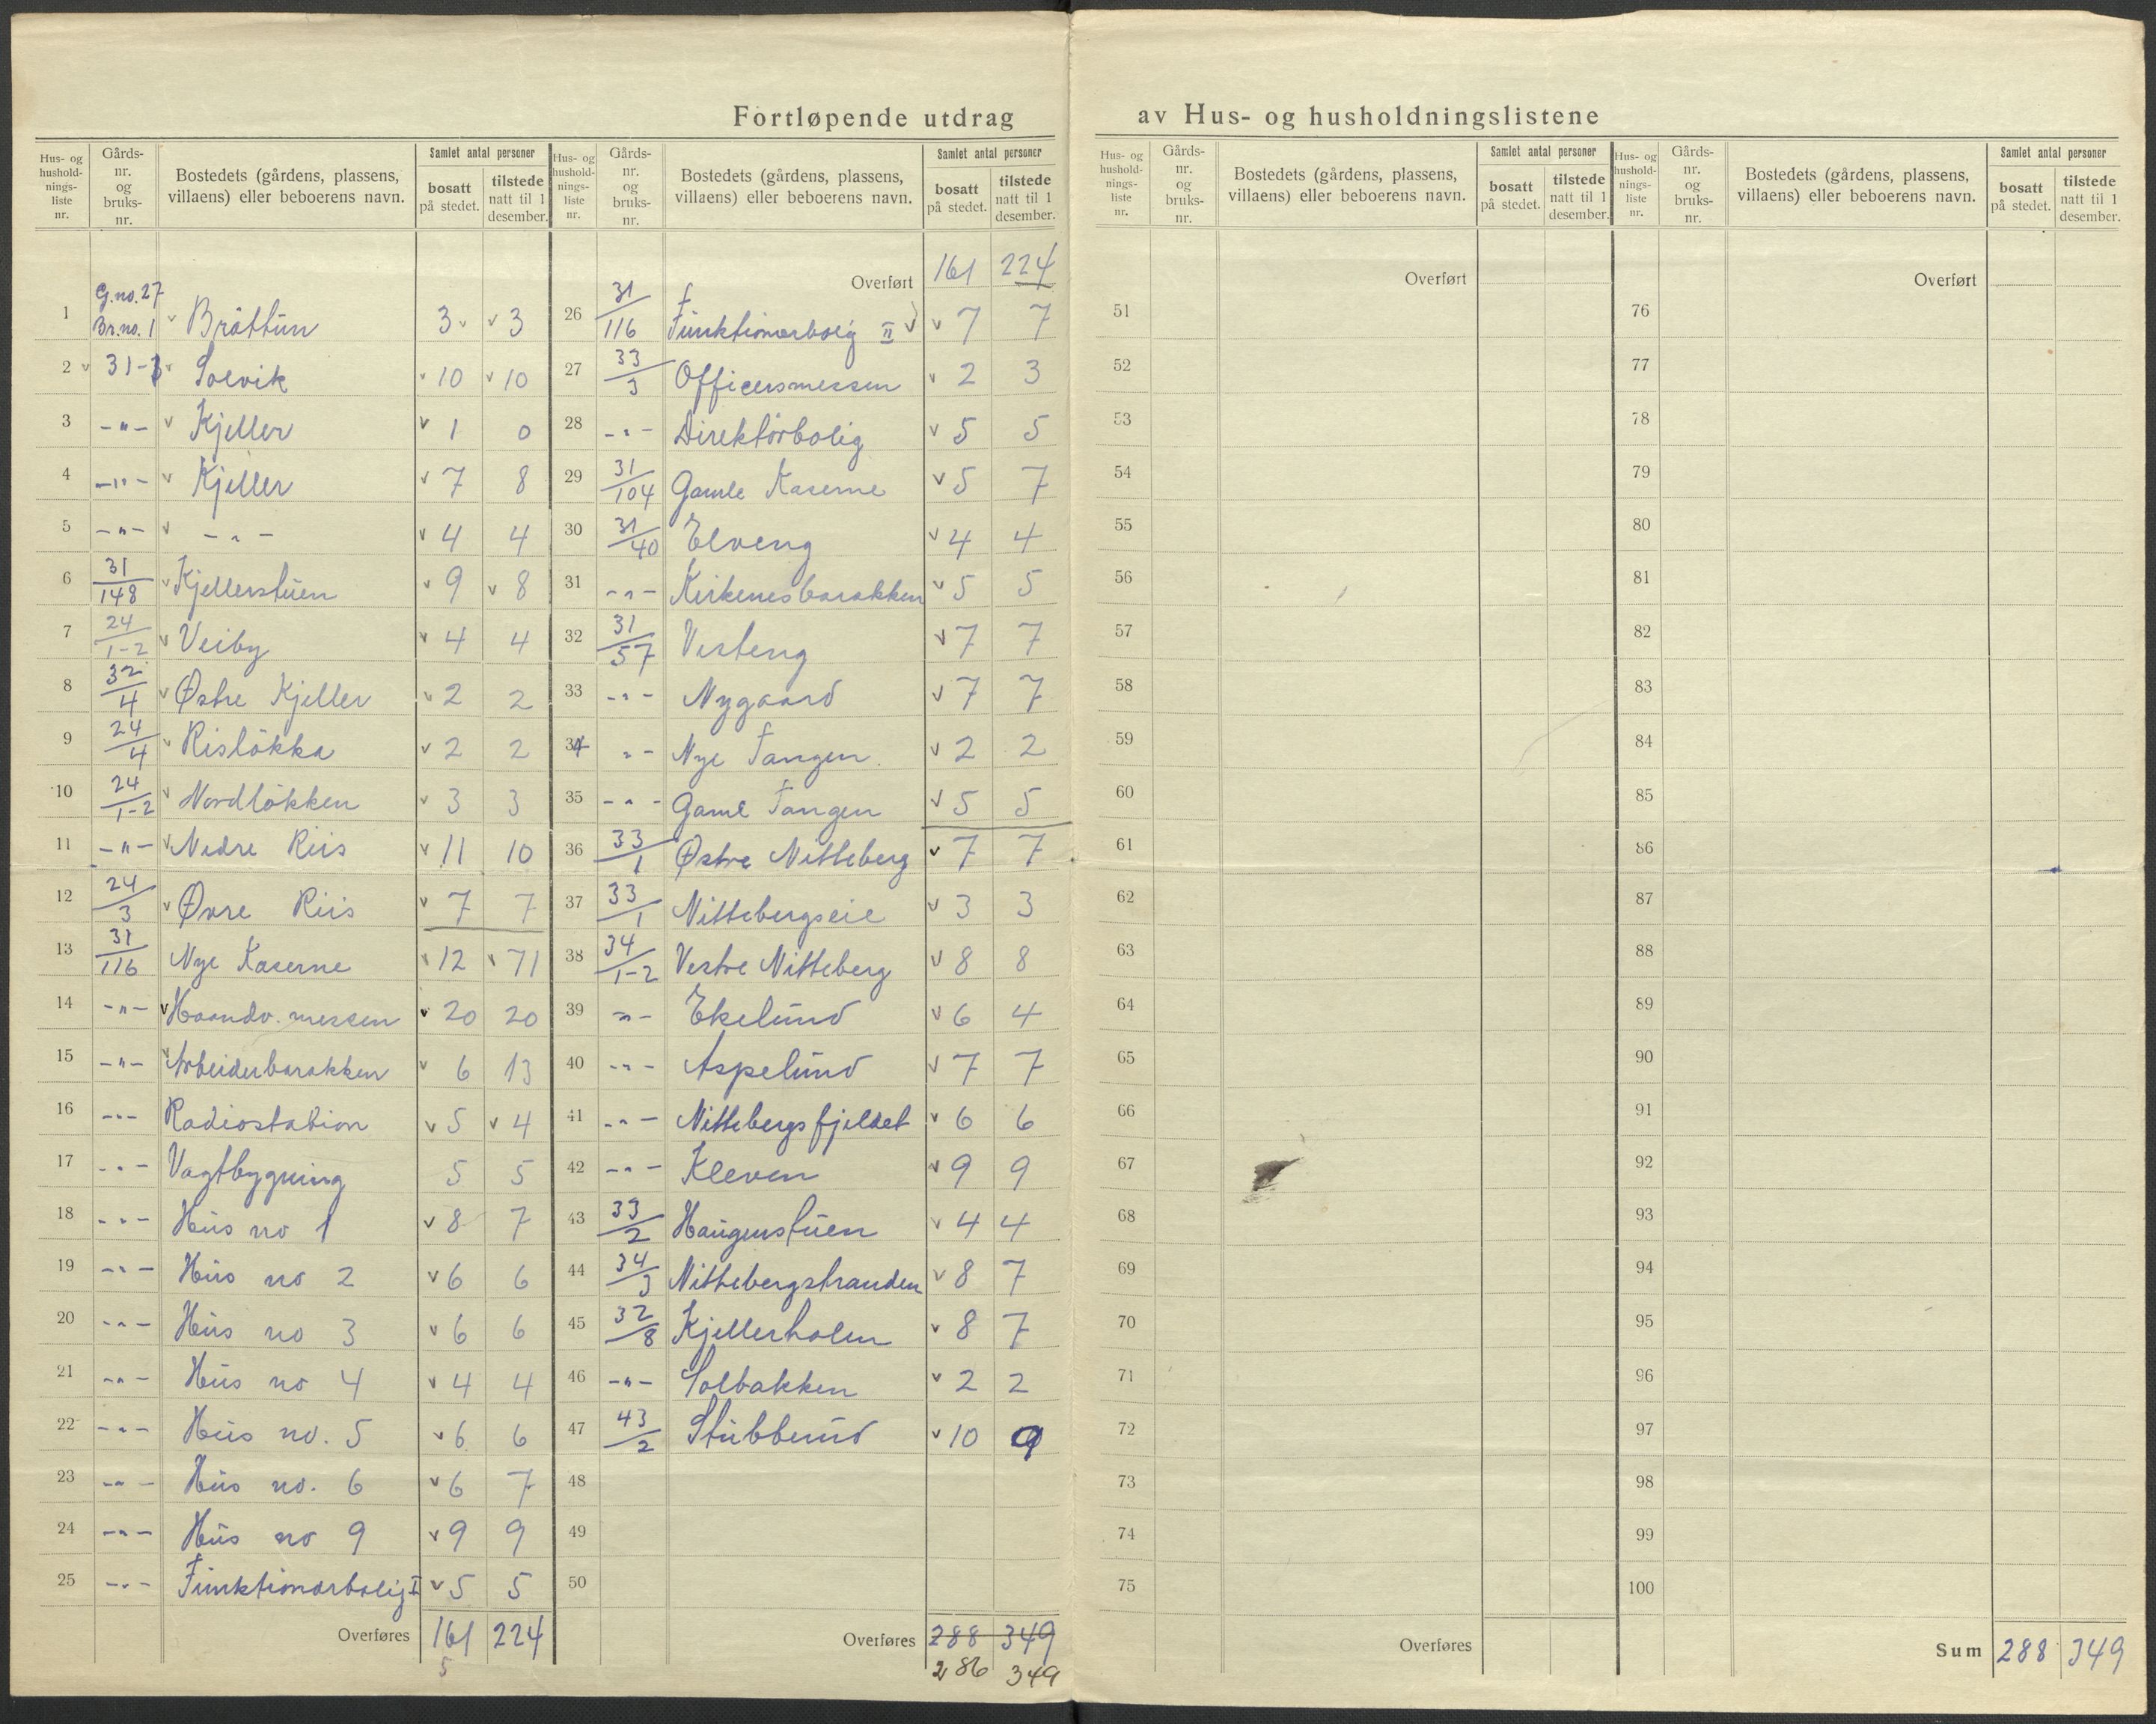 Fortløpende utdrag av Hus- og husholdningslistene
Hus- og hushold- nings- liste nr. | Gårds- nr. og bruks- nr. | Bostedets (gårdens, plassens, villaens) eller beboerens navn. | Samlet antal personer | bosatt på stedet. | tilstede natt til 1 desember.
1 G.no. 27 Br.no. 1 v Bråttun 3 v v 3
2 v 31-1 v Solvik v 10 v 10
3 -"- v Kjeller v 1 0
4 -"- v Kjeller v 7 8
5 -"- v -"- v 4 4
6 31/148 v Kjellerstuen v 9 v 8
7 24/1-2 v Veiby v 4 4
8 32/4 v Østre Kjeller v 2 2
9 24/4 v Risløkka v 2 2
10 24/1-2 v Nordløkken v 3 3
11 -"- v Nedre Riis v 11 10
12 24/3 v Øvre Riis v 7 7
13 31/116 Nye Kaserne v 12 v 71
14 -"- v Haandv. messen v 20 20
15 -"- v Arbeiderbarakken v 6 13
16 -"- Radiostation v 5 v 4
17 -"- Vagtbygning 5 5
18 -"- Hus no 1 v 8 7
19 -"- Hus no 2 v 6 6
20 -"- Hus no 3 v 6 6
21 -"- Hus no 4 v 4 4
22 -"- Hus no. 5 v 6 6
23 -"- Hus no. 6 v 6 7
24 -"- Hus no 9 v 9 9
25 -"- Funktionærbolig I v 5 5
Overføres 161 224
5
Hus- og hushold- nings- liste nr. | Gårds- nr. og bruks- nr. | Bostedets (gårdens, plassens, villaens) eller beboerens navn. | Samlet antal personer | bosatt på stedet. | tilstede natt til 1 desember.
Overført 161 224
26 31/116 Funktionærbolig II v v 7 7
27 33/3 Officersmessen v 2 3
28 -"- Direktørbolig v 5 5
29 31/104 Gamle Kaserne v 5 7
30 31/40 Elveng v 4 4
31 -"- Kirkenesbarakken v 5 5
32 31/57 Vesteng v 7 7
33 -"- Nygaard v 7 7
34 "- Nye Tangen. v 2 2
35 -"- Gaml Tangen v 5 5
36 33/1 Østre Nitteberg v 7 7
37 33/1 Nittebergseie v 3 3
38 34/1-2 Vestre Nitteberg v 8 8
39 -"- Ekelund v 6 4
40 -"- Aspelund v 7 7
41 -"- Nittebergsfjeldet v 6 6
42 -"- Kleven v 9 9
43 33/2 Haugenstuen v 4 4
44 34/3 Nittebergstranden v 8 7
45 32/8 Kjellerholen v 8 7
46 -"- Solbakken v 2 2
47 43/2 Stubberud v 10 9
48
49
50
Overføres 288 349
286 349
Hus- og hushold- nings- liste nr. | Gårds- nr. og bruks- nr. | Bostedets (gårdens, plassens, villaens) eller beboerens navn. | Samlet antal personer | bosatt på stedet. | tilstede natt til 1 desember.
Overført
51
52
53
54
55
56
57
58
59
60
61
62
63
64
65
66
67
68
69
70
71
72
73
74
75
Overføres
Hus- og hushold- nings- liste nr. | Gårds- nr. og bruks- nr. | Bostedets (gårdens, plassens, villaens) eller beboerens navn. | Samlet antal personer | bosatt på stedet. | tilstede natt til 1 desember.
Overført
76
77
78
79
80
81
82
83
84
85
86
87
88
89
90
91
92
93
94
95
96
97
98
99
100
Sum 288 349